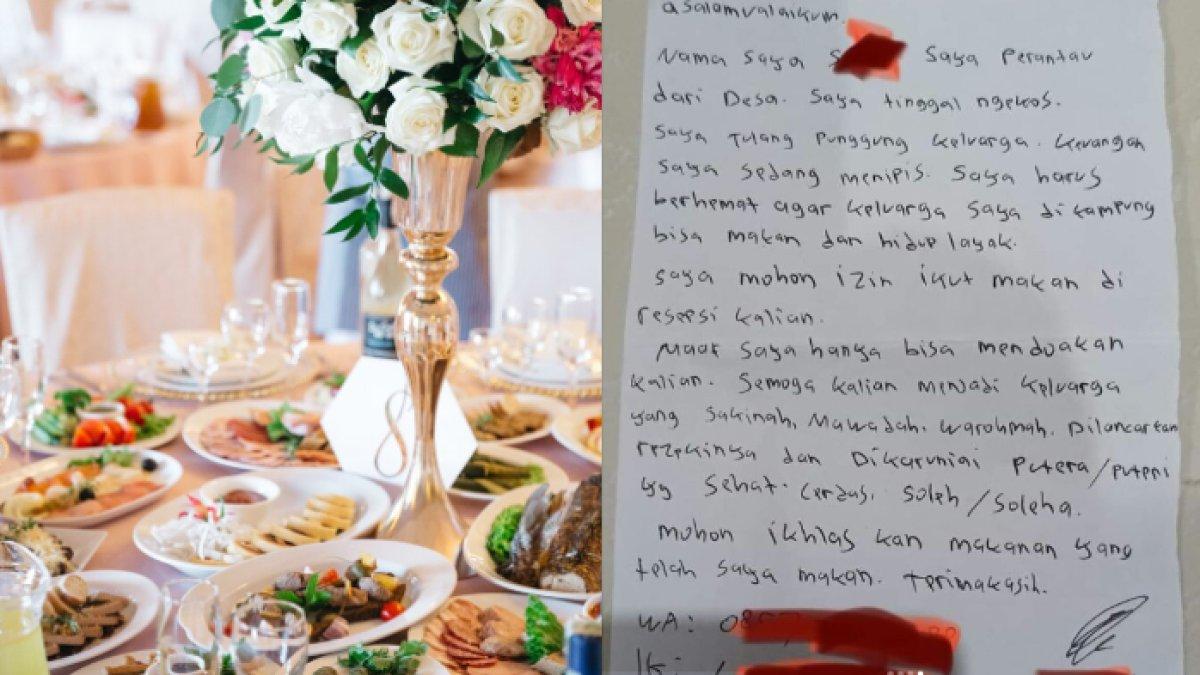 8
asalomualaikum.
Nama saya S saya Perantau
dari Desa. saya tinggal ngekos.
saya Tulang Punggung keluarga. keuangan
saya sedang menipis. saya harus
berhemat agar keluarga saya di kampung
bisa makan dan hidup layak.
saya mohon izin ikut makan di
resepsi kalian.
Maaf saya hanya bisa mendoakan
kalian. Semoga kalian menjadi keluarga
yang sakinah, Mawadah, warohmah. Dilancarkan
rezekinya dan Dikaruniai Putera/puteri
yg sehat. cerdas. soleh/soleha.
mohon ikhlas kan makanan yang
telah saya makan. Terimakasih.
WA: 08